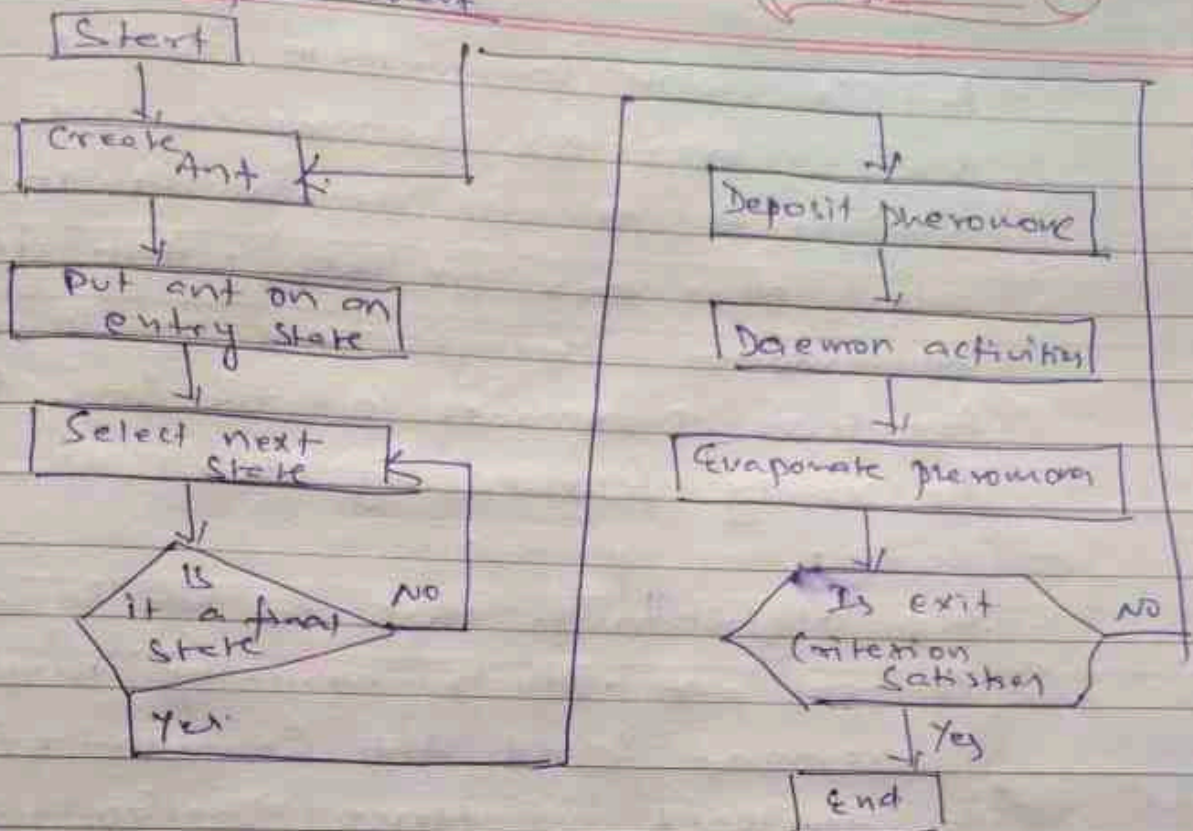 Start
Create
Ant
Put ant on an
entry state
Select next
state
Is
it a final
state
NO
Yes
Deposit pheromone
Daemon activities
Evaporate pheromon
Is exit
Criterion
Satisfies
NO
Yes
End